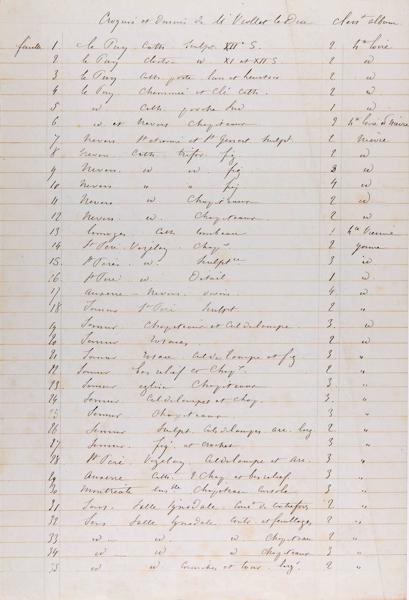 Croquis et dessins de Mr Viollet le Duc
feuille 1 le Puy Cath. Sculpt. XIIe S. 2 hte Loire
2 le Puy Cloitre XI et XII S 2 id
3 le Puy Cath. porte 2 id
4 le Puy Cheminée et Clé Cath. 2 id
5 id Cath. porche Sud 1 id
6 id et Nevers Chapiteaux 2 hte Loire et Nièvre
7 Nevers St Etienne et St Genest Sculpt. 2 Nièvre
8 Nevers Cath. trifor. fig. 2 id
9 Nevers id id fig 3 id
10 Nevers " " fig 4 id
11 Nevers id Chapiteaux 2 id
12 Nevers id Chapiteaux 2 id
13 Limoges Cath. tombeau 1 hte Vienne
14 St Père Vézelay Chapx 2 Yonne
15 St Père id Sculptre 3 id
16 St Père id Détail 1 id
17 Auxerre Nevers 4 id
18 Semur St Père Sculpt 2 "
19 Semur Chapiteaux et Cul de lampe 3 id
20 Semur 2 id
21 Semur Cul de lampe et fig 3 "
22 Semur bas relief et Chapx 2 "
23 Semur église Chapiteaux 3 "
24 Semur Cul de lampe et Chap. 3 "
25 Semur Chapiteaux 3 "
26 Semur Sculpt. Culs de lampes arc. 2 "
27 Semur fig. et crochet 3 "
28 St Père Vézelay Cul de lampe et arc. 3 "
29 Auxerre Cath. 2 Chap. et bas relief 3 "
30 Montréale Chapiteau Console 3 "
31 Sens Salle Synodale 2 "
32 Sens Salle Synodale et feuillages 2 "
33 id id Chapiteau 2 "
34 id id id Chapiteaux 3 "
35 id id 2 "